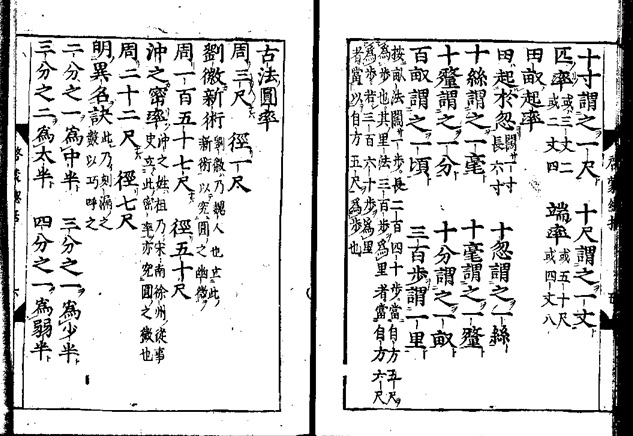 十寸謂之一尺　十尺謂之一丈
匹率 或三丈二 或二丈四　端率 或五十尺 或四丈八
田畝起率
田起於忽 闊一寸 長六寸　十忽謂之一絲
十絲謂之一毫　十毫謂之一釐
十釐謂之一分　十分謂之一畝
百畝謂之一頃　三百步謂一里
按畝法闊一步長二百四十步當自方五尺
為步也其里法三百步為里者當自方六尺
為步若三百六十步為里
者當以自方五尺為步也
古法圓率
周三尺　徑一尺
劉徽新術 劉徽乃魏人也立此 新術以究圓之幽微
周一百五十七尺　徑五十尺
沖之密率 沖之姓祖乃宋南徐州從事 史立此密率亦究圓之微也
周二十二尺　徑七尺
明異名訣 此乃刻漏之 數以巧呼之
二分之一為中半　三分之一為少半
三分之二為太半　四分之一為弱半